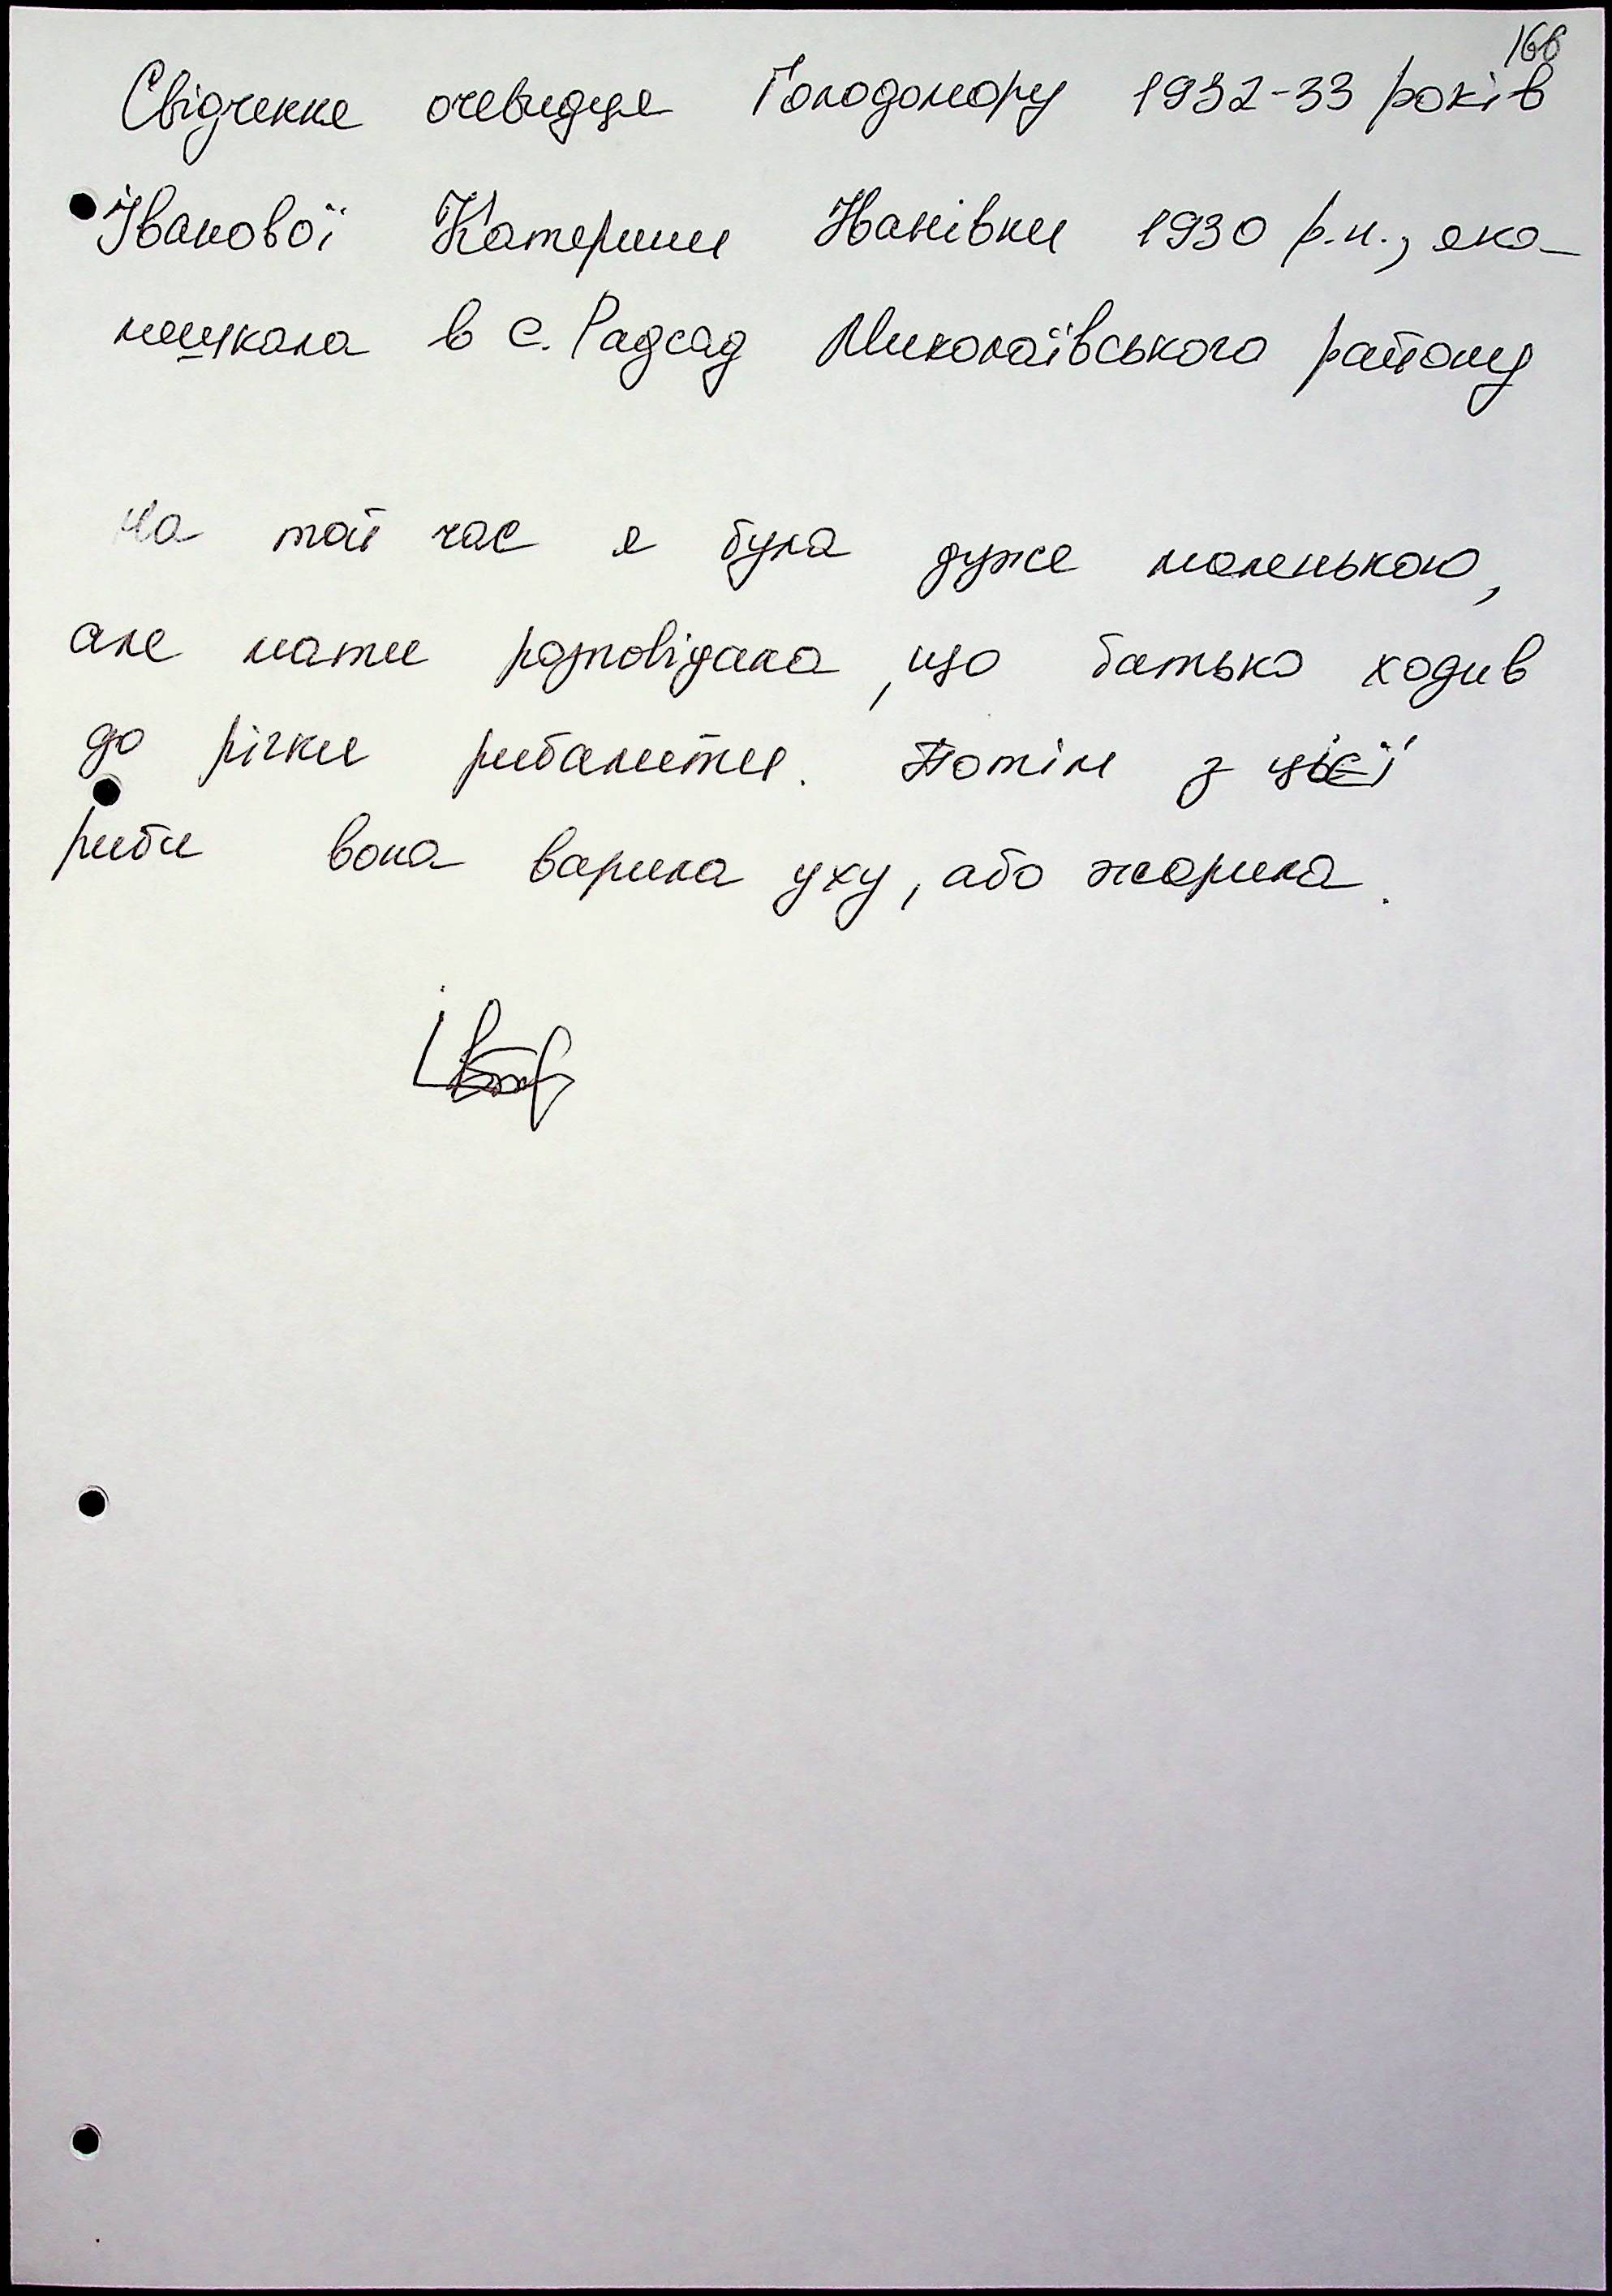 168
Свідчення очевидця Голодомору 1932-33 років
Іванової Катерини Іванівни 1930 р.н., яка
мешкала в с. Радсад Миколаївського району
На той час я була дуже маленькою,
але мати розповідала, що батько ходив
до річки рибалити. Потім з цієї
риби вона варила уху, або жарила.